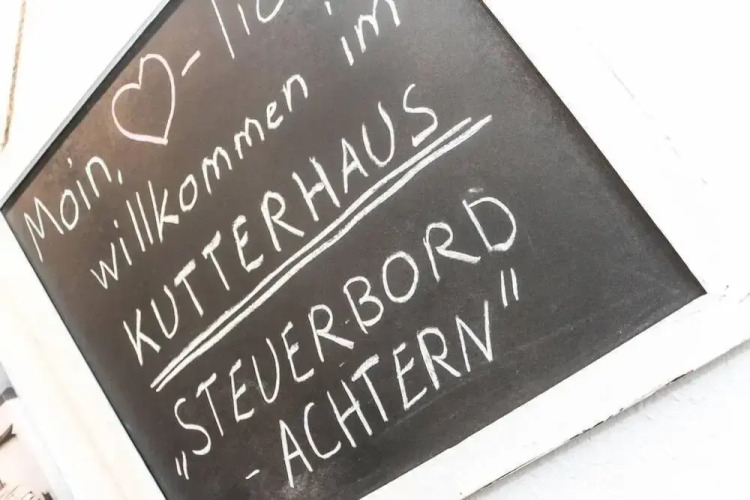 Moin, ♡-lic
willkommen im
KUTTERHAUS
„STEUERBORD
-ACHTERN"